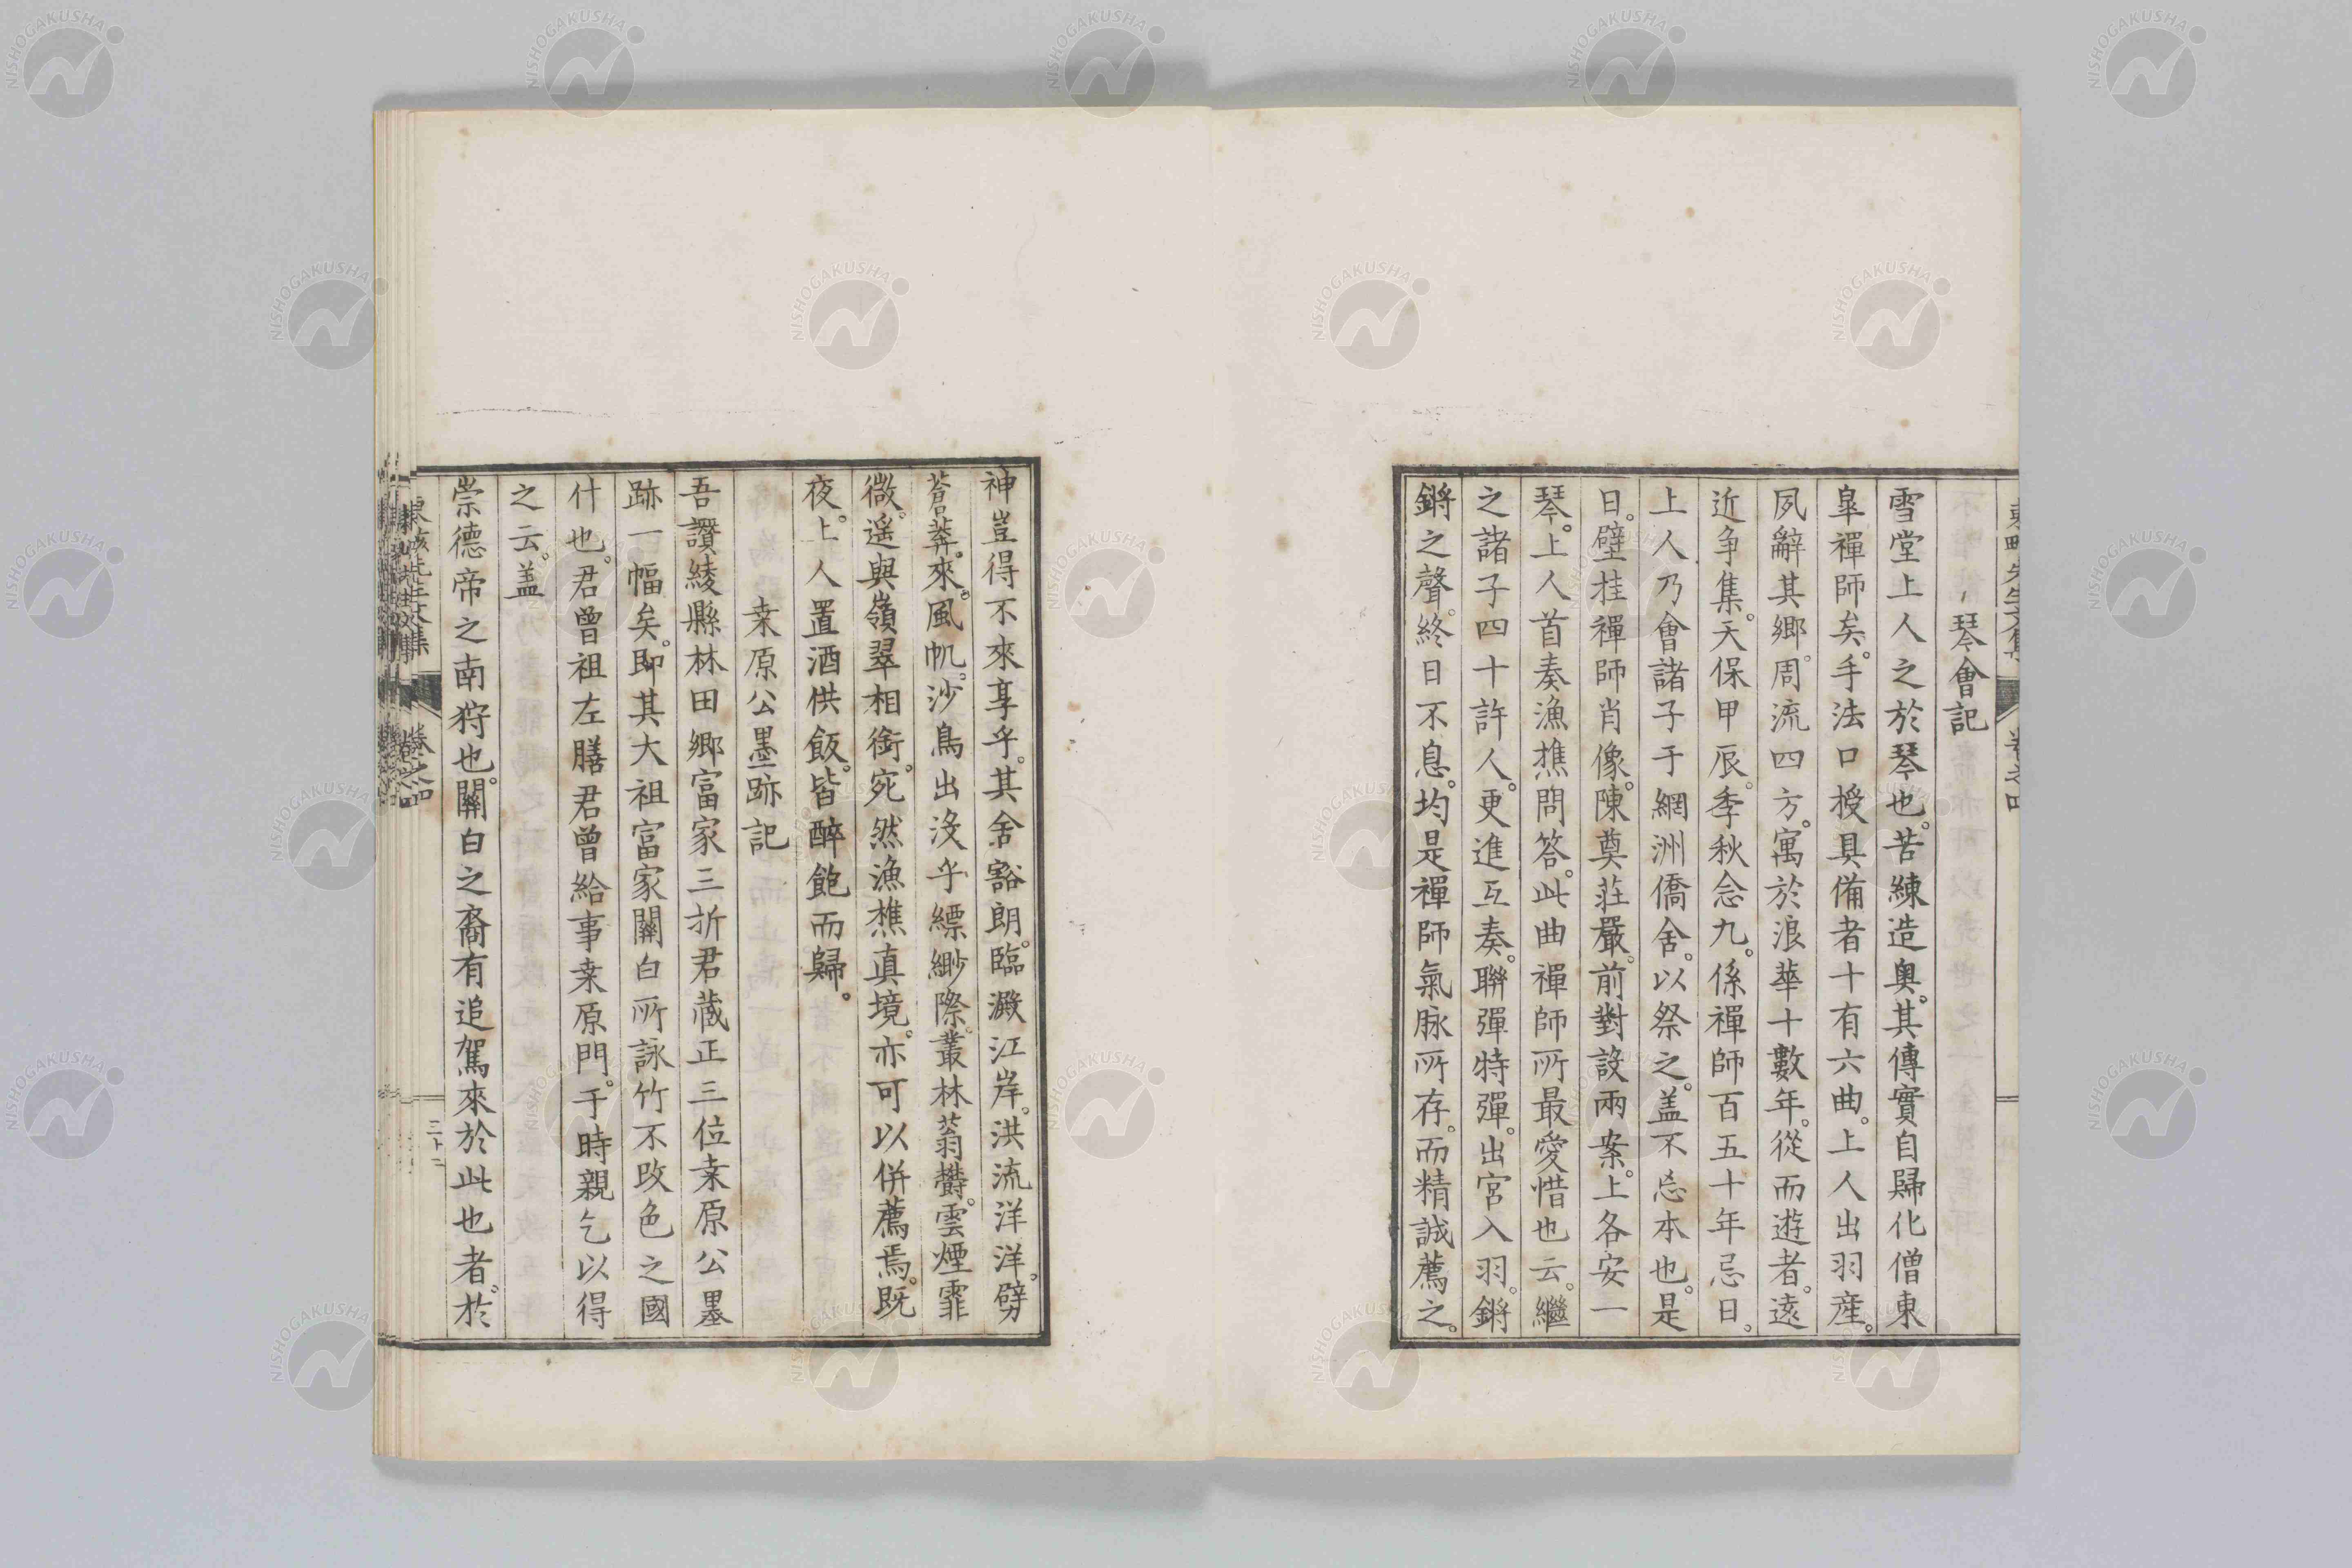 琴會記
雪堂上人之於琴也。苦練造奥。其傳實自歸化僧東
皐禪師矣。手法口授具備者十有六曲。上人出羽産。
夙辭其鄉。周流四方。寓於浪華十數年。從而遊者。遠
近争集。天保甲辰。季秋念九。係禪師百五十年忌日。
上人乃會諸子于網洲僑舍。以祭之。盖不忘本也。是
日。壁挂禪師肖像。陳奠荘嚴。前對設兩案。上各安一
琴。上人首奏漁樵問答。此曲禪師所最愛惜也云。繼
之諸子四十許人。更進互奏。聯彈特彈。出宮入羽。鏘
鏘之聲。終日不息。均是禪師氣脉所存。而精誠薦之。
神豈得不來享乎。其舍豁朗。臨澱江岸。洪流洋洋。劈
蒼莽來。風帆。沙鳥出沒乎縹緲際。叢林蓊欝。雲煙霏
微。遥與嶺翠相銜。宛然漁樵真境。亦可以併薦焉。既
夜。上人置酒供飯。皆醉飽而歸。
桒原公墨跡記
吾讚綾縣林田鄉富家三折君蔵正三位桒原公墨
跡一幅矣。即其大祖富家關白所詠竹不改色之國
什也。君曾祖左膳君曾給事桒原門。于時親乞以得
之云。盖
崇德帝之南狩也。關白之裔有追駕來於此也者。於
三十二